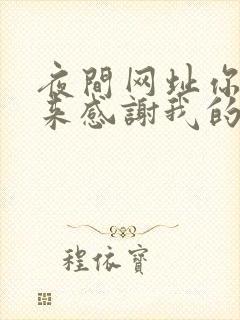 夜間网址你
来感謝我的
程依寶